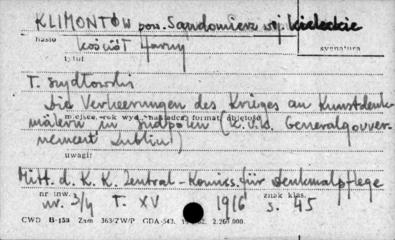 KLIMONTÓW pow. Sandomierz woj. kieleckie
hasło
sygnatura
Kościół farny
tytuł
T. Szydłowski
Die Verheerungen des Krieges an Kunstdenk-
miejsce, rok wyd., nakładca, format, objętość
mälern in Südpolen (K.u.K. Generalgouver-
nement Lublin)
uwagi:
Mitt. d. K. K. Zentral-Komiss. für Denkmalpflege
nr inw.
znak klas.
nr. 3/4 T. XV 1916 s. 45
CWD B-153 Zam 363/ZW/P GDA-543. 2.260.000.